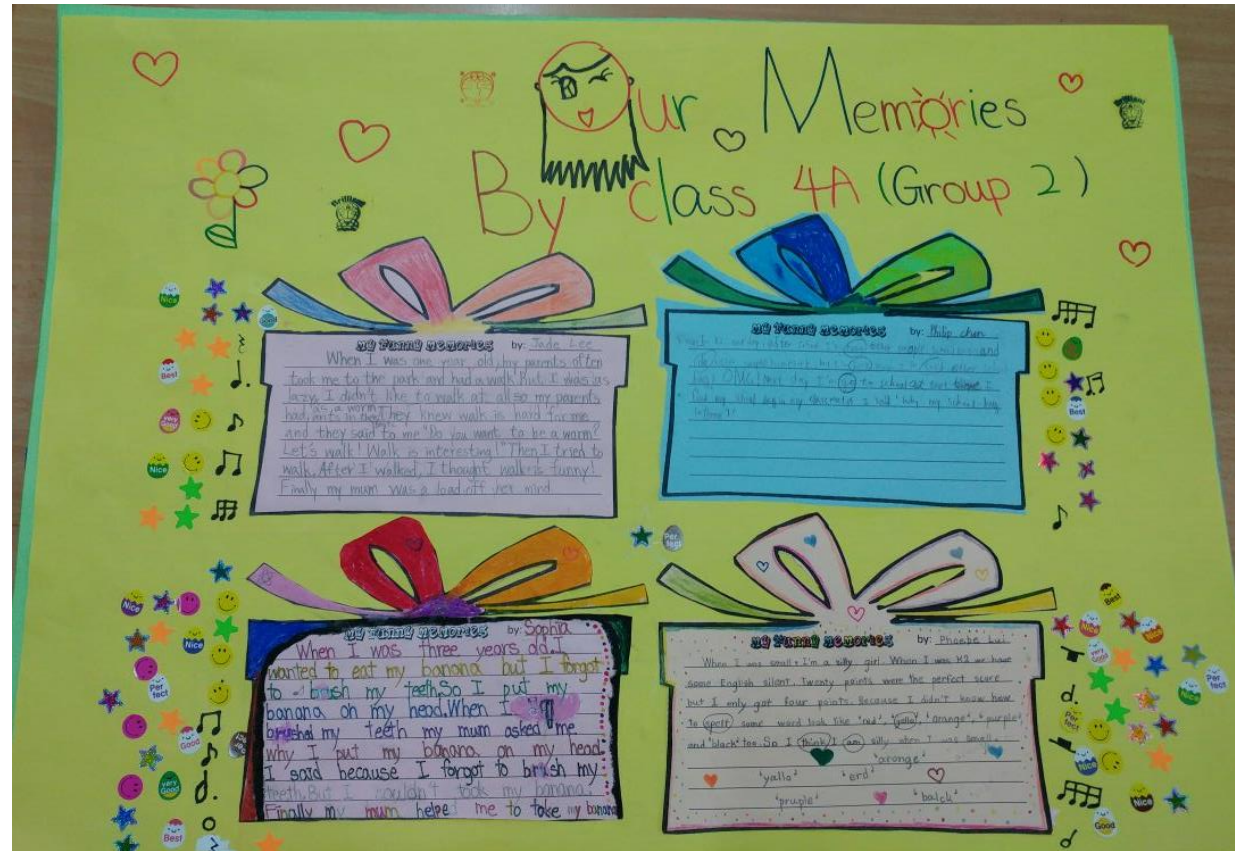 Our Memories
By class 4A (Group 2)
My Funny Memories by: Jade Lee
When I was one year old, my parents often
took me to the park and had a walk. But I was as
lazy, I didn't like to walk at all so my parents
as a worm.
had They knew walk is hard for me
and they said to me "Do you want to be a worm?
Let's walk! Walk is interesting!" Then I tried to
walk. After I walked, I thought walk is funny!
Finally my mum was a load off her mind
My Funny Memories by: Philip chan
and
bag! OMG! that day I'm go to school
my school bag in my classmate I said "Why my school bag
My Funny Memories by: Sophia
When I was three years old. I
wanted to eat my banana but I forgot
to brush my teeth. So I put my
banana on my head. When I
brushed my teeth my mum asked me
why I put my banana on my head.
I said because I forgot to brush my
teeth. But I couldn't took my banana.
Finally my mum helped me to take my banana
My Funny Memories by: Phoebe Lui
When I was small. I'm a silly girl. When I was K2 we have
some English silant. Twenty points were the perfect score
but I only got four points. Because I didn't know have
to spell some word look like 'red', 'yallo', 'orange', 'purple'
and 'black' too. So I think I am silly when I was small.
'arange'
'yallo' 'erd'
'pruple' 'balck'
Nice
Good
Best
Nice
Perfect
Best
Nice
Nice
Perfect
Good
Very Good
Best
Best
Nice
Very Good
Perfect
Nice
Perfect
Nice
Nice
Good
Brilliant
Brilliant